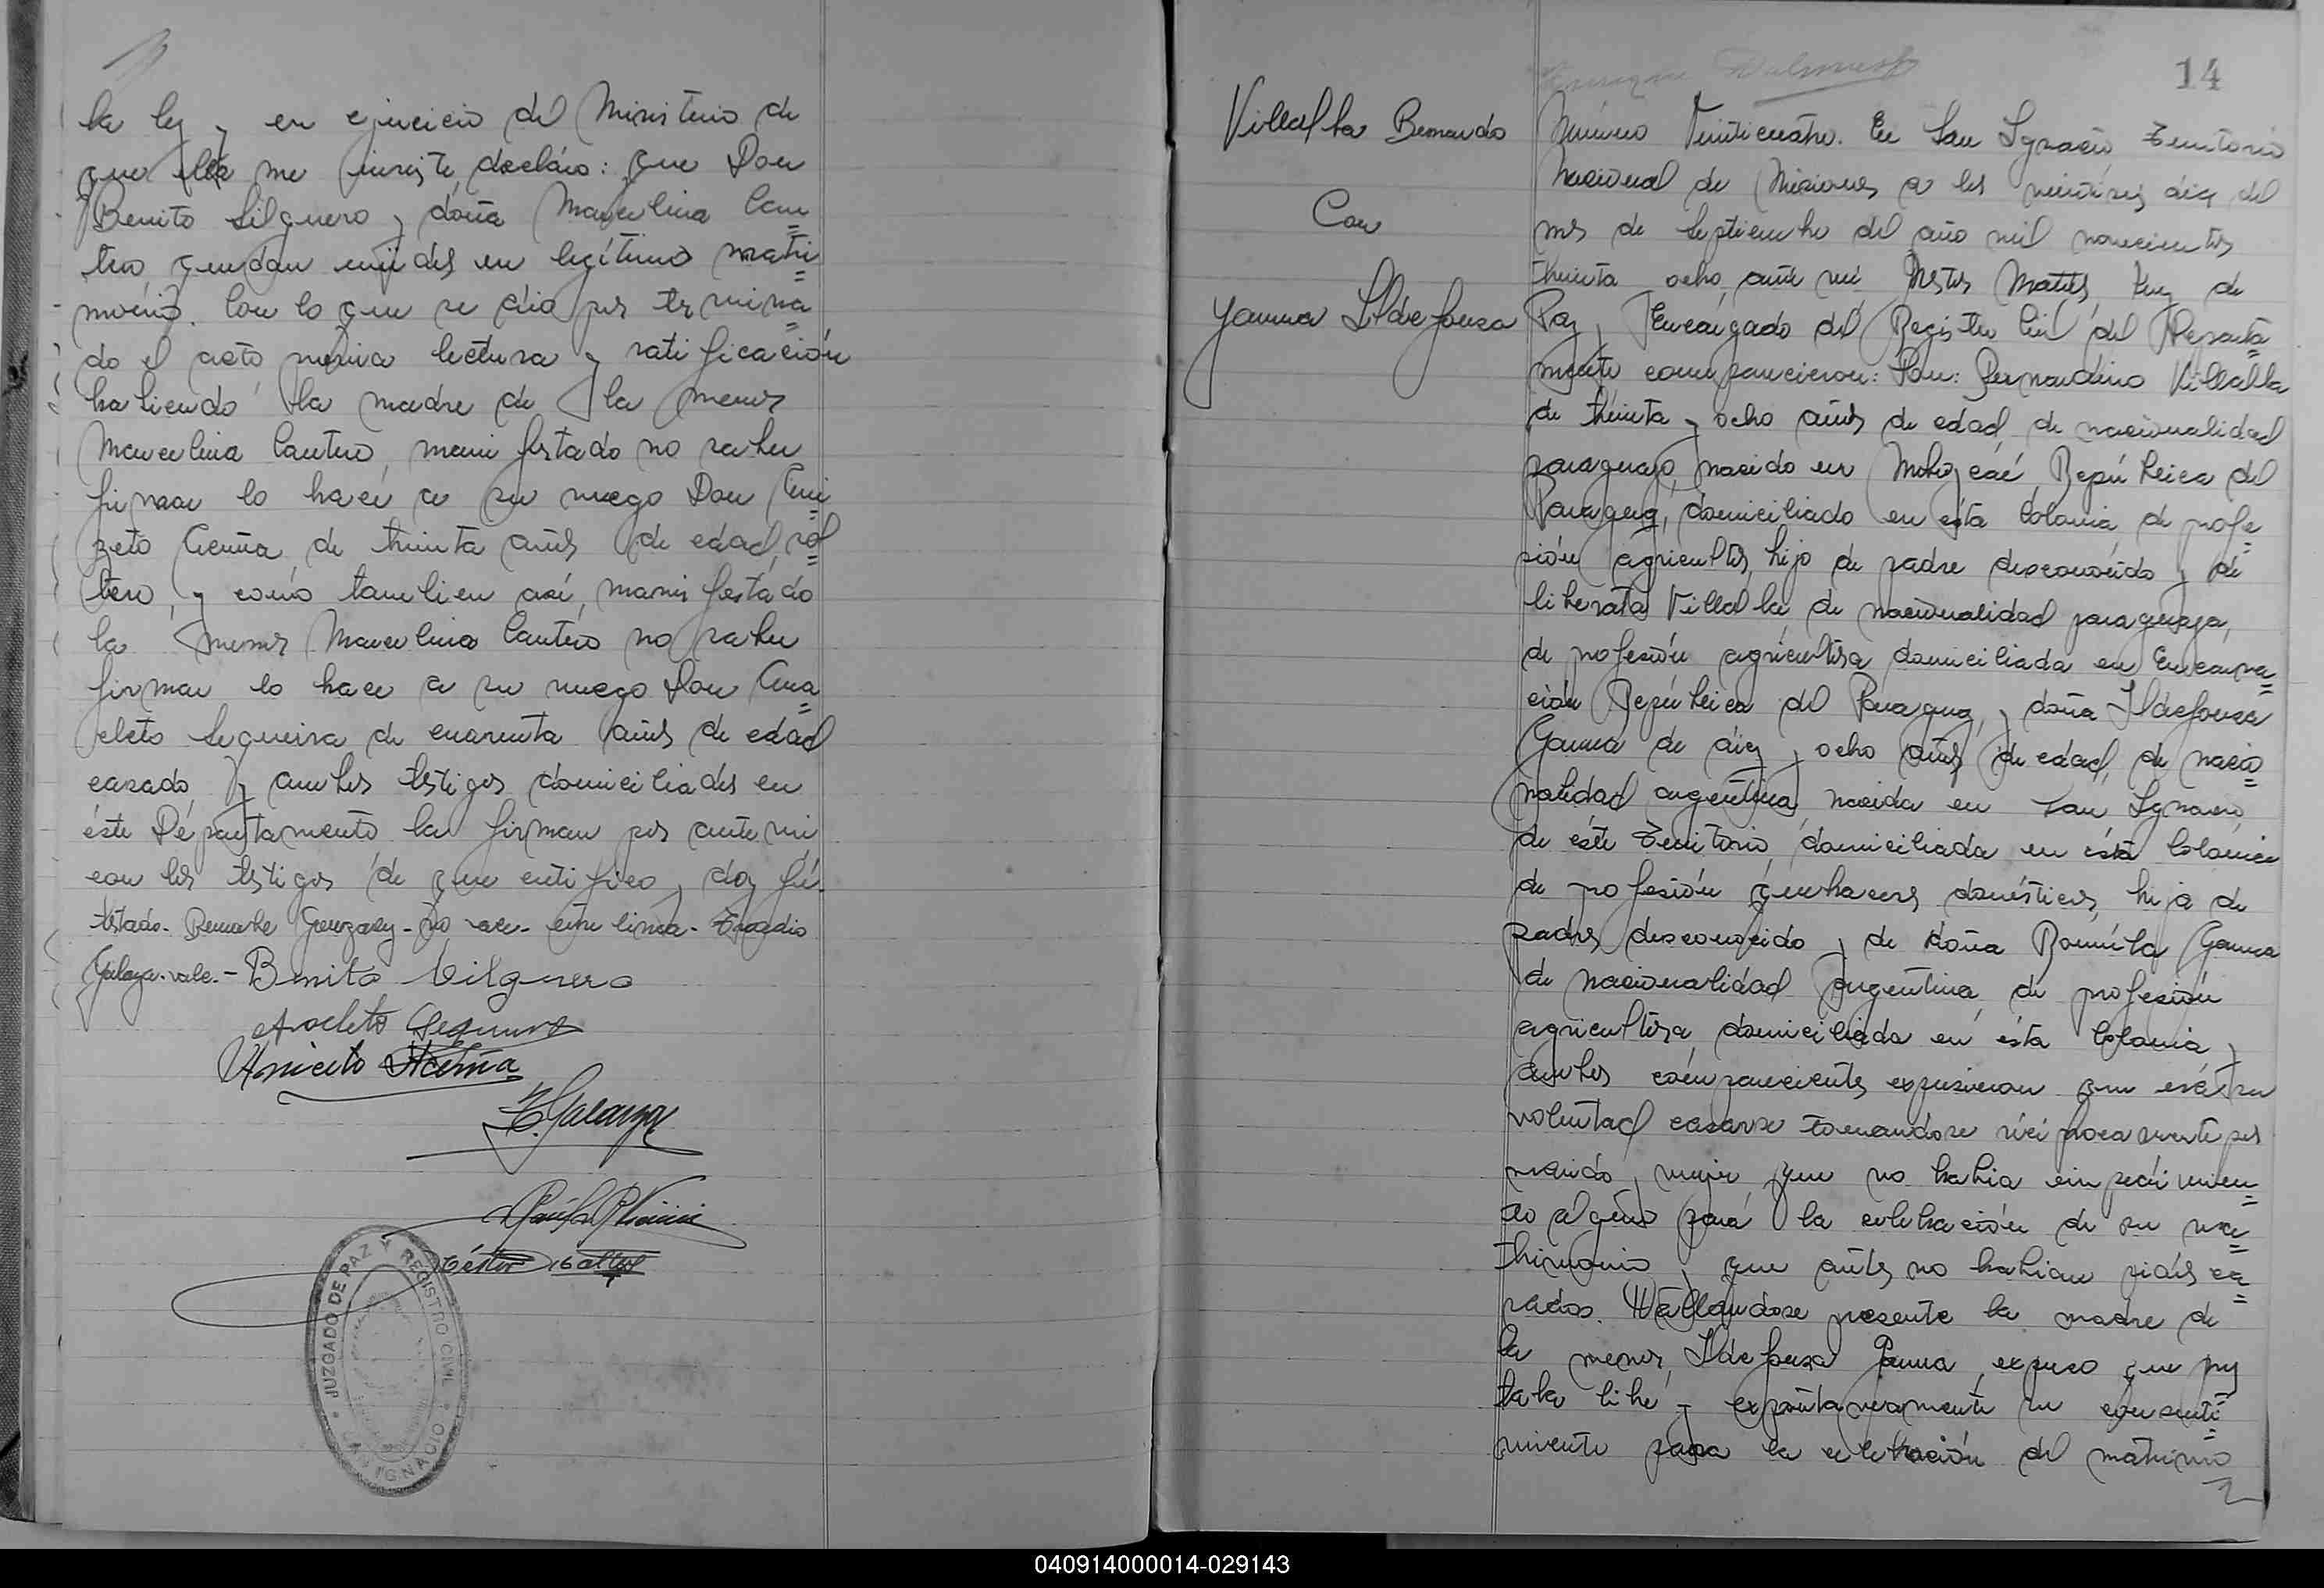 la ley y en ejercicio del Ministerio de
que ella me inviste declaro: que Don
Benito Silguero y doña Marcelina Can=
tero quedan unidos en legítimo matri=
monio. Con lo que se dio por termina=
do el acto previa lectura y ratificación
habiendo la madre de la menor
Marcelina Cantero, manifestado no saber
firmar lo hace a su ruego Don Ani=
zeto Acuña de treinta años de edad, sol=
tero, y como tambien así, manifestado
la menor Marcelina Cantero no saber
firmar lo hace a su ruego Don Ana=
cleto Sequeira de cuarenta años de edad
casado y ambos testigos domiciliados en
éste Departamento la firman por ante mi
con los testigos de que certifico y doy fé.
testado- Bernabe Gonzalez- no vale- entre linea-
Galarza- vale.- Benito Silguero
Anacleto Sequeira
Aniceto Acuña
E. Galarza
Néstor Mattos
JUZGADO DE PAZ Y REGISTRO CIVIL
SAN IGNACIO
14
Villalba Bernardo
Con
Gamna Ildefonsa
Número Veinticuatro. En San Ignacio Territorio
Nacional de Misiones a los veintitres dias del
mes de Septiembre del año mil novecientos
treinta ocho, ante mi Nestor Mattos, Juez de
Paz y Encargado del Registro Civil del Departa=
mento comparecieron: Don: Bernardino Villalba
de treinta y ocho años de edad, de nacionalidad
paraguayo, nacido en República del
Paraguay, domiciliado en ésta Colonia, de profe=
sión agricultor, hijo de padre desconocido y de
Liberata Villalba de nacionalidad paraguaya,
de profesión agricultora domiciliada en Encarna=
ción República del Paraguay, y doña Ildefonsa
Gamna de diez y ocho años de edad, de nacio=
nalidad argentina, nacida en San Ignacio
de éste Territorio, domiciliada en ésta Colonia
de profesión quehaceres domésticos, hija de
padre desconocido y de doña Romula Gamna
de nacionalidad argentina, de profesión
agricultora domiciliada en ésta Colonia, y
ambos comparecientes expusieron que era su
voluntad casarse tomandose reciprocamente por
marido y mujer, que no habia impedimen=
to alguno para la celebración de su ma=
trimonio y que antes no habian sido ca=
sados. Hallandose presente la madre de
la menor Ildefonsa Gamna, expuso que pres
taba libre y espontaneamente su consenti=
miento para la celebración del matrimo